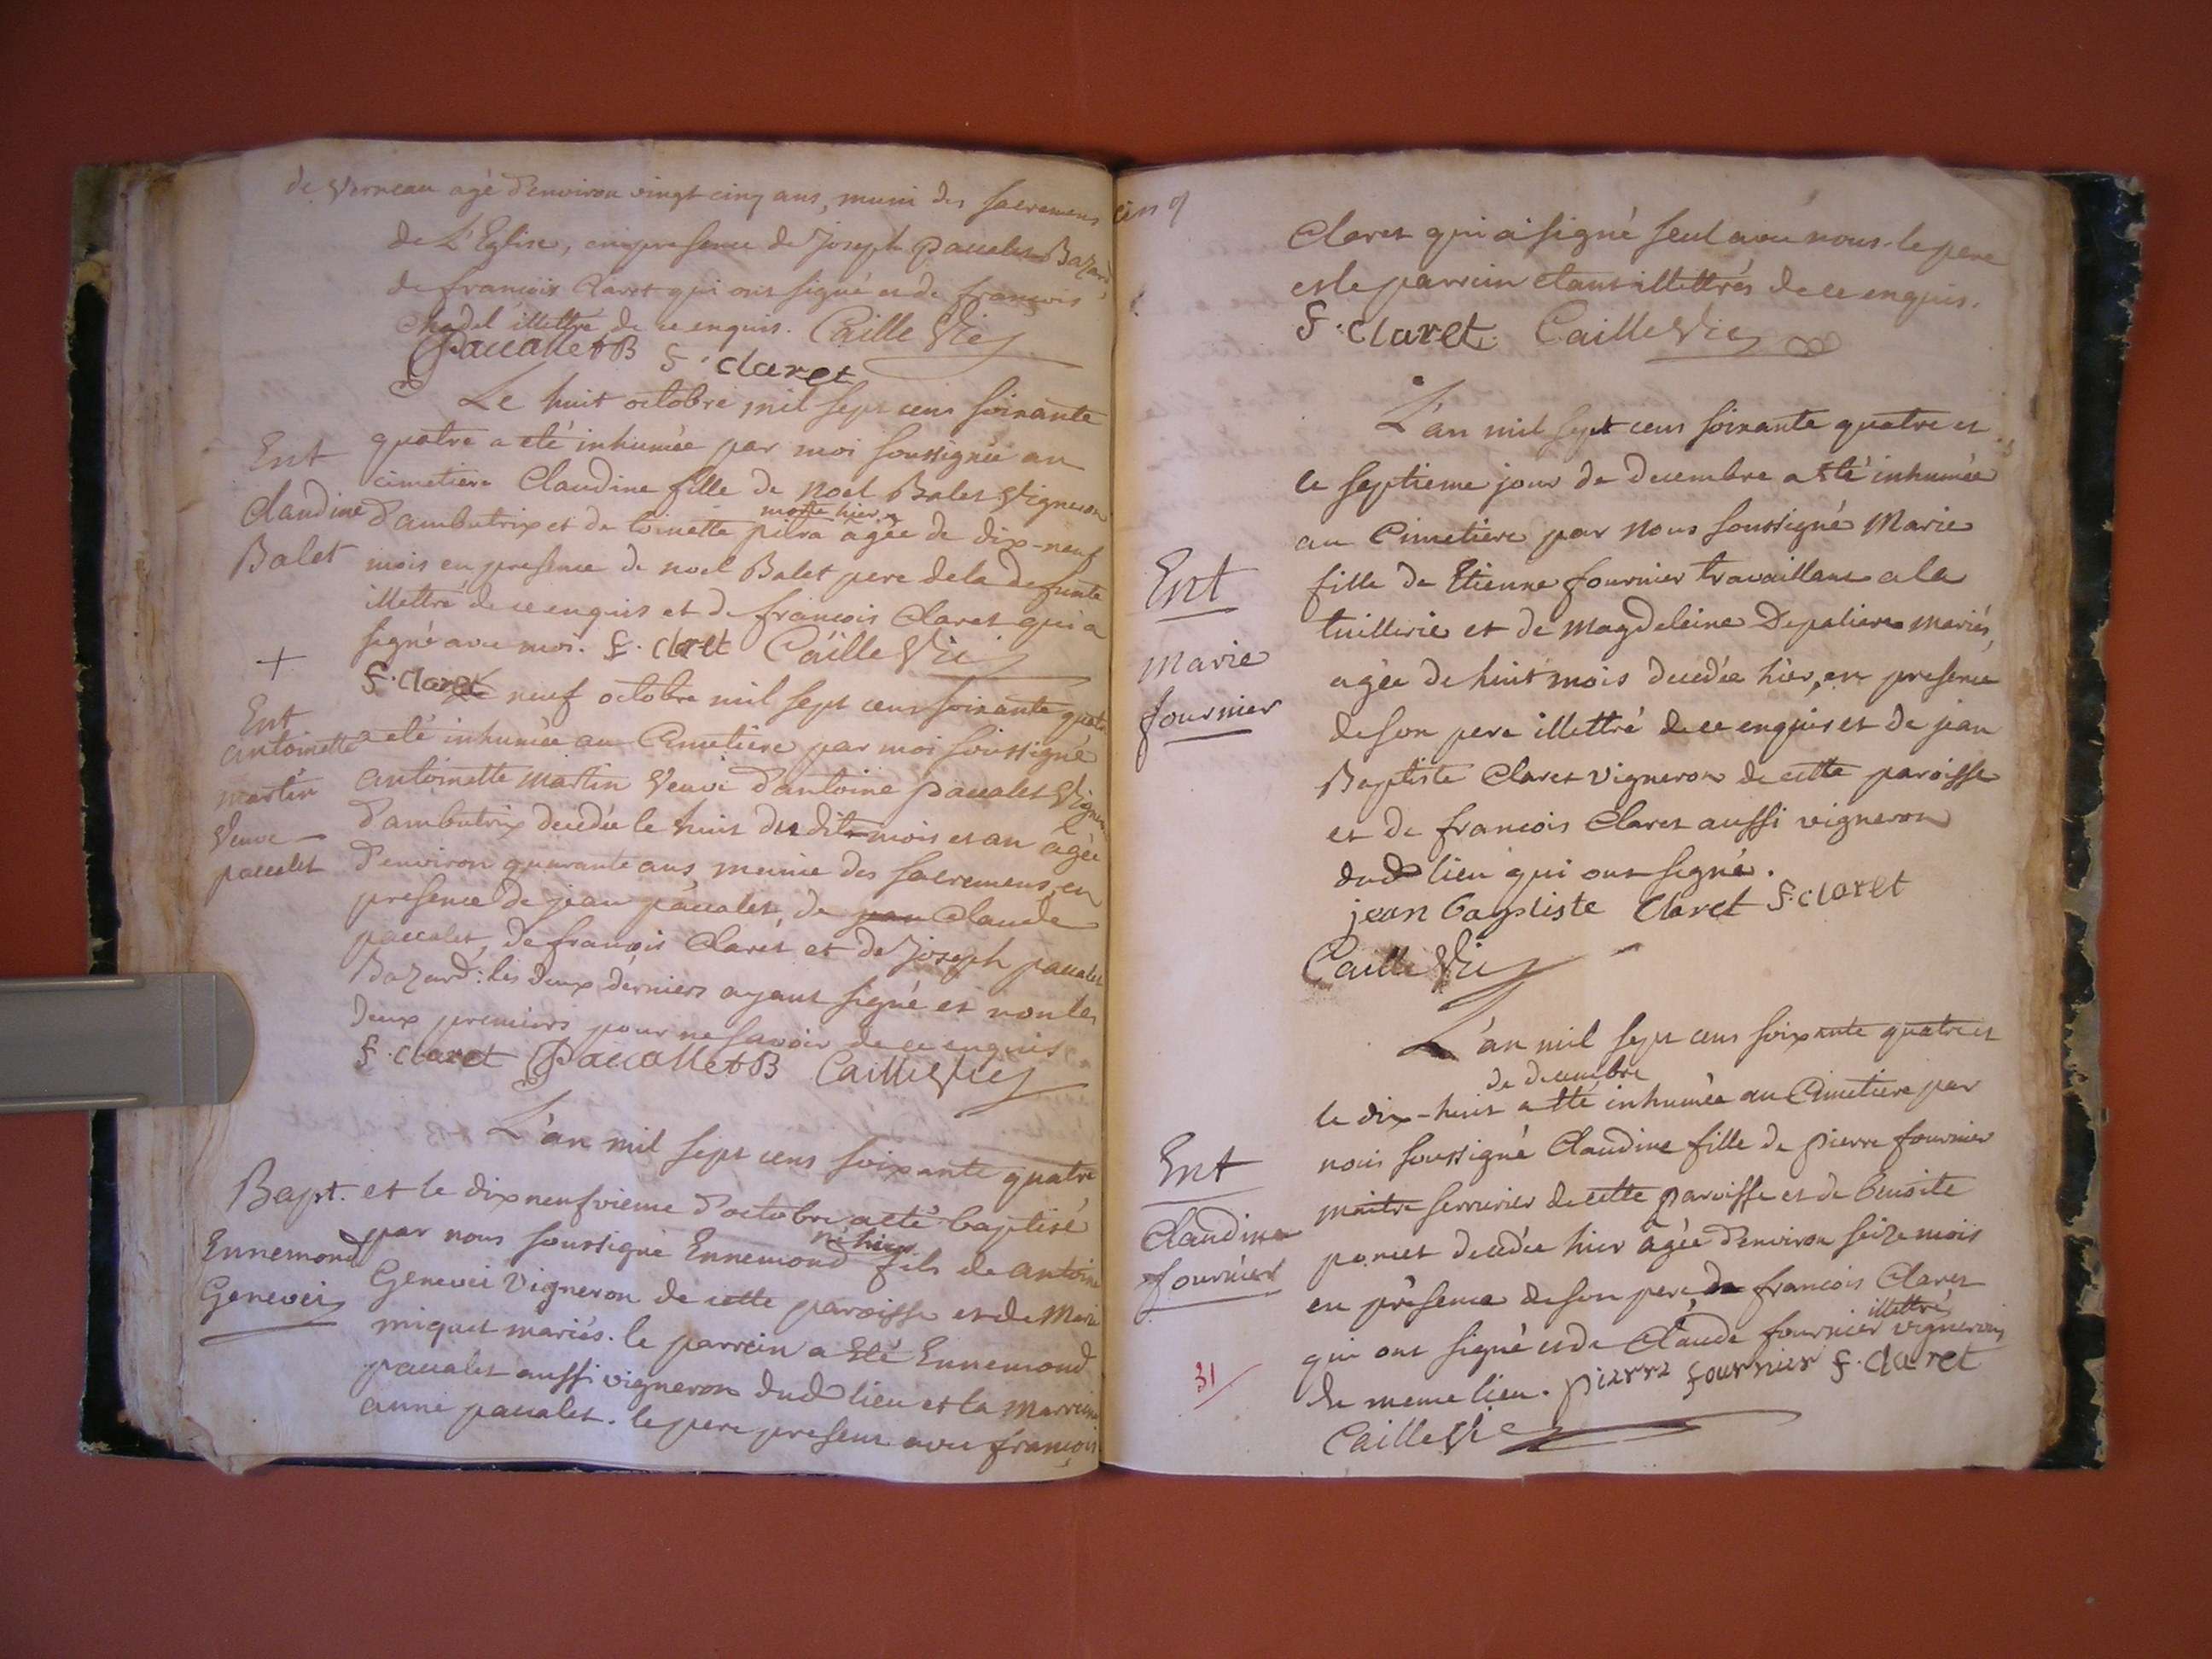 de Verneau agé d'environ vingt cinq ans, muni des sacremens
de L'Eglise, en presence de Joseph paccalet Bozard,
de françois Claret qui ont signé et de françois
Chadel illettré de ce enquis. Caille Vic
Paccallet B F. Claret
Le huit octobre mil sept cens soixante
Ent
quatre a eté inhumée par moi soussignée au
cimetiere Claudine fille de noel Balet Vigneron
Claudine
morte hier
d'ambutrix et de toinette pitra agée de dix-neuf
Balet
mois en presence de noel Balet pere de la defunte
illettré de ce enquis et de françois Claret qui a
signé avec moi. F. Claret Caille Vic
+
F. Claret Le neuf octobre mil sept cens soixante quatre
Ent
antoinette
martin
Veuve
paccalet
a eté inhumée au Cimetiere par moi soussigné
antoinette martin Veuve d'antoine paccalet Vigneron
d'ambutrix decedée le huit du dit mois et an agée
d'environ quarante ans munie des sacremens, en
presence de jean paccalet, de jean Claude
paccalet, de françois Claret et de Joseph paccalet
Bozard: les deux derniers ayant signé et non les
deux premiers pour ne savoir de ce enquis
F. Claret Paccallet B Caille Vic
L'an mil sept cens soixante quatre
Bapt.
et le dix neufvieme d'octobre a eté baptisé
né hier
Ennemond
par nous soussigné Ennemond fils de antoine
Genevei
Genevei Vigneron de cette paroisse et de Marie
miquet mariés. le parrein a Eté Ennemond
paccalet aussi vigneron dud lieu et la marreine
anne paccalet. le pere present avec françois
Claret qui a signé seul avec nous. le pere
et le parrein etant illettrés de ce enquis.
F. Claret Caille Vic
L'an mil sept cens soixante quatre et
le septieme jour de decembre a Eté inhumée
au Cimetiere par nous soussigné Marie
Ent
Marie
fournier
fille de Etienne fournier travaillant a la
tuillerie et de Magdeleine Depaliere mariés,
agée de huit mois decedée hier, en presence
de son pere illettré de ce enquis et de jean
Baptiste Claret vigneron de cette paroisse
et de francois Claret aussi vigneron
dud lieu qui ont signé.
jean baptiste Claret F. Claret
Caille Vic
L'an mil sept cens soixante quatre et
de decembre
le dix-huit a Eté inhumée au Cimetiere par
Ent
Claudine
fournier
nous soussigné Claudine fille de pierre fournier
maitre serrurier de cette paroisse et de benoite
poncet decedée hier agée d'environ seize mois
en presence de son pere, de francois Claret
illettré
qui ont signé et de Claude fournier vignerons
31
du meme lieu. pierre fournier F. Claret
Caille Vic